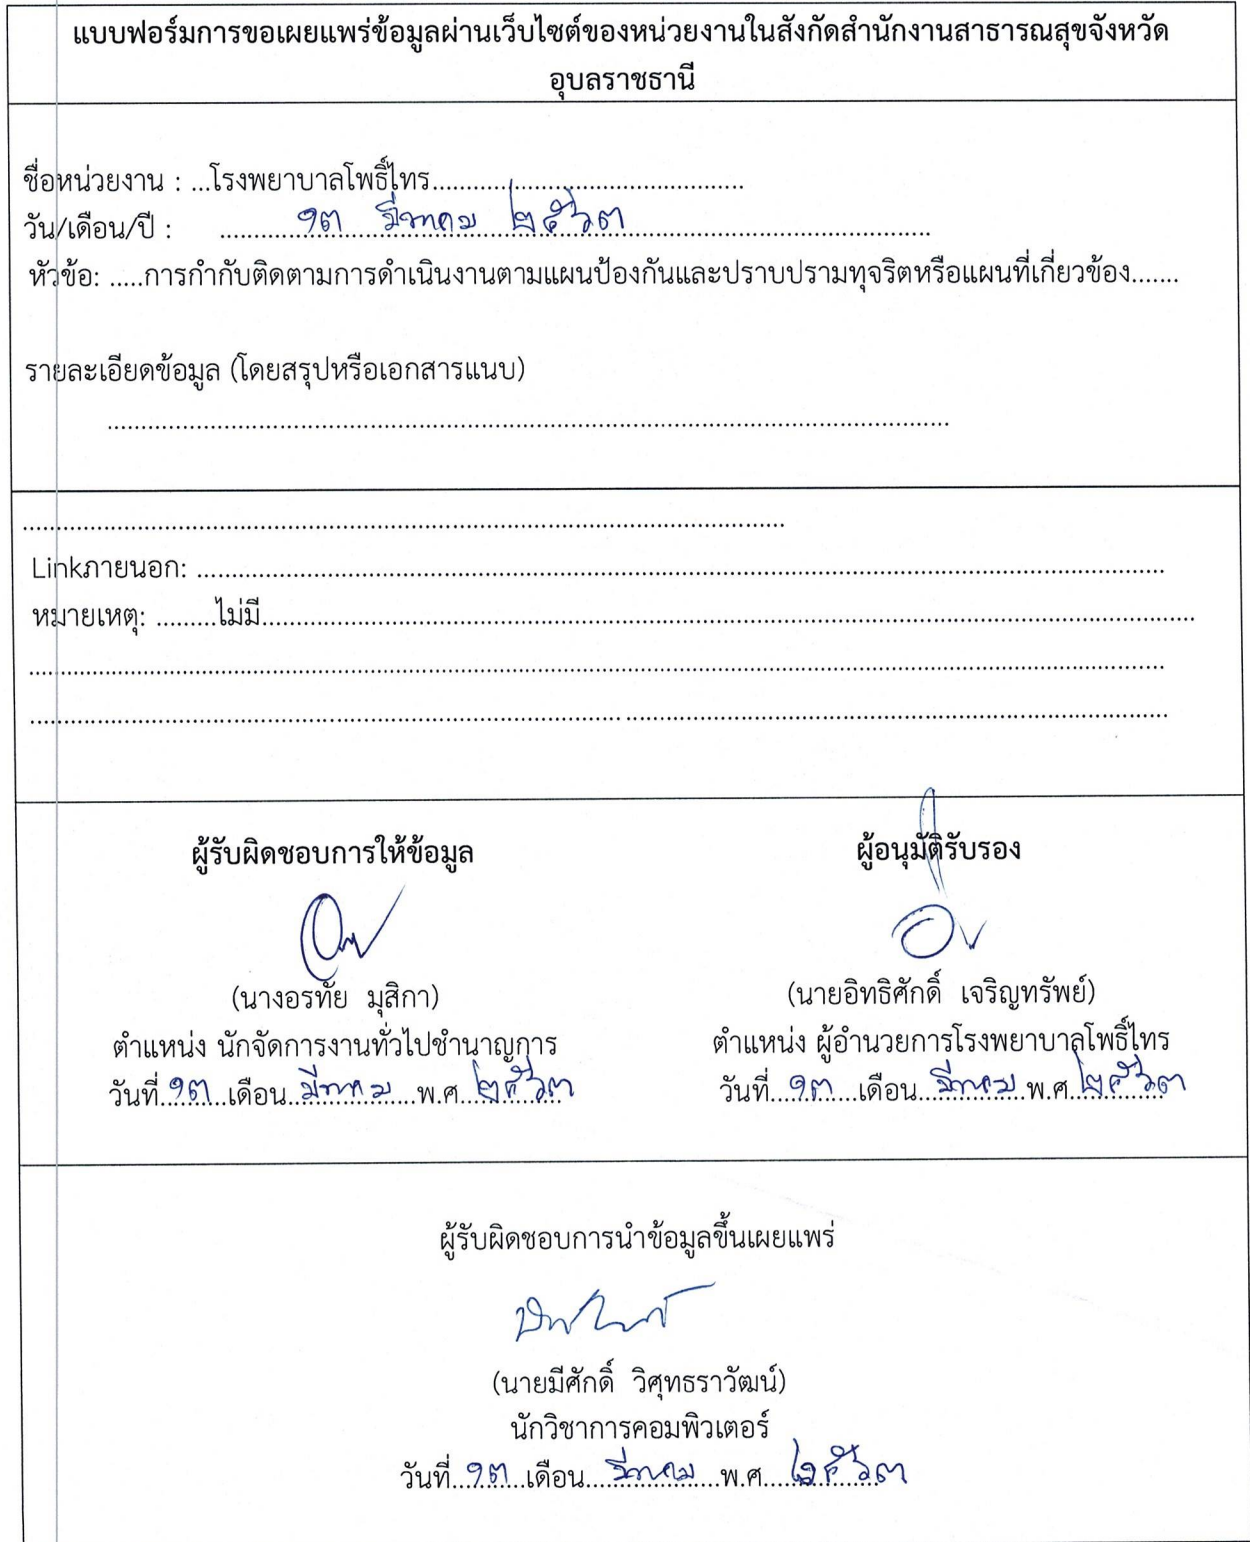 แบบฟอร์มการขอเผยแพร่ข้อมูลผ่านเว็บไซต์ของหน่วยงานในสังกัดสำนักงานสาธารณสุขจังหวัด
อุบลราชธานี
ชื่อหน่วยงาน : ...โรงพยาบาลโพธิ์ไทร..............................................
วัน/เดือน/ปี : ๑๓ มีนาคม ๒๕๖๓
หัวข้อ: .....การกำกับติดตามการดำเนินงานตามแผนป้องกันและปราบปรามทุจริตหรือแผนที่เกี่ยวข้อง.......
รายละเอียดข้อมูล (โดยสรุปหรือเอกสารแนบ)
Linkภายนอก: ..........
หมายเหตุ: .........ไม่มี..........
ผู้รับผิดชอบการให้ข้อมูล ผู้อนุมัติรับรอง
(นางอรทัย มุสิกา) (นายอิทธิศักดิ์ เจริญทรัพย์)
ตำแหน่ง นักจัดการงานทั่วไปชำนาญการ ตำแหน่ง ผู้อำนวยการโรงพยาบาลโพธิ์ไทร
วันที่ ๑๓ เดือน มีนาคม พ.ศ. ๒๕๖๓ วันที่ ๑๓ เดือน มีนาคม พ.ศ. ๒๕๖๓
ผู้รับผิดชอบการนำข้อมูลขึ้นเผยแพร่
(นายมีศักดิ์ วิศุทธราวัฒน์)
นักวิชาการคอมพิวเตอร์
วันที่ ๑๓ เดือน มีนาคม พ.ศ. ๒๕๖๓